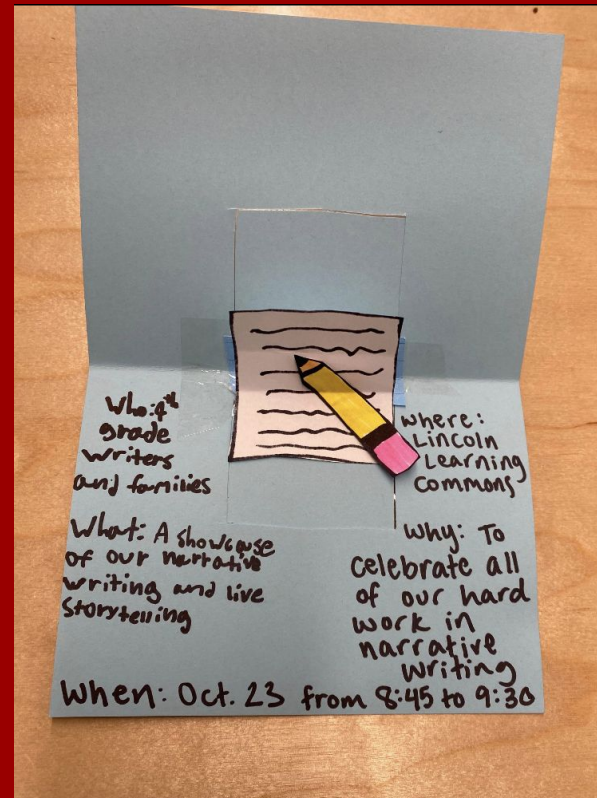 Who: 4th
grade
writers
and families
What: A showcase
of our narrative
writing and live
storytelling
where:
Lincoln
Learning
Commons
Why: To
celebrate all
of our hard
work in
narrative
writing
When: Oct. 23 from 8:45 to 9:30